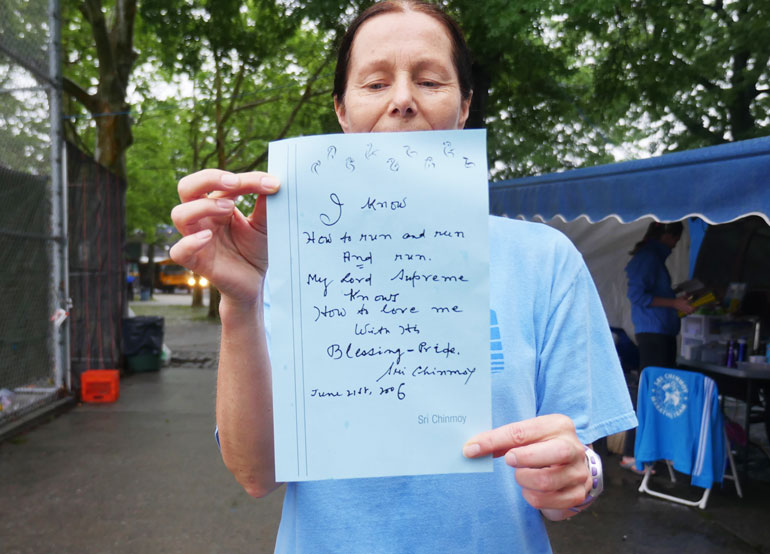 I know
How to run and run
And run.
My Lord Supreme
Knows
How to love me
With His
Blessing-Pride.
Sri Chinmoy
June 21st, 2006
Sri Chinmoy
SRI CHINMOY